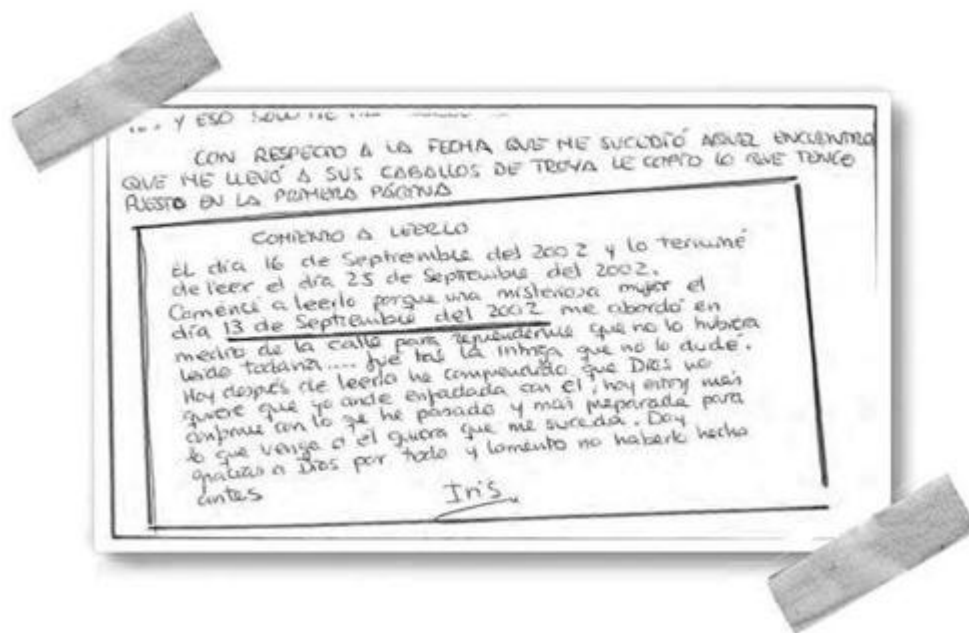 ... Y ESO
CON RESPECTO A LA FECHA QUE ME SUCEDIÓ AQUEL ENCUENTRO
QUE ME LLEVÓ A SUS CABALLOS DE TROYA LE COPIO LO QUE TENGO
PUESTO EN LA PRIMERA PÁGINA
COMIENZO A LEERLO
EL día 16 de Septiembre del 2002 y lo terminé
de leer el día 25 de Septiembre del 2002.
Comencé a leerlo porque una misteriosa mujer el
día 13 de Septiembre del 2002 me abordó en
medio de la calle para reprenderme que no lo hubiera
leido todavía.... fue tal la intriga que no lo dudé.
Hoy después de leerlo he comprendido que Dios no
quiere que yo ande enfadada con el, hoy estoy más
conforme con lo que he pasado y más preparada para
lo que venga o el quiera que me suceda. Doy
gracias a Dios por todo y lamento no haberlo hecho
antes
Iris